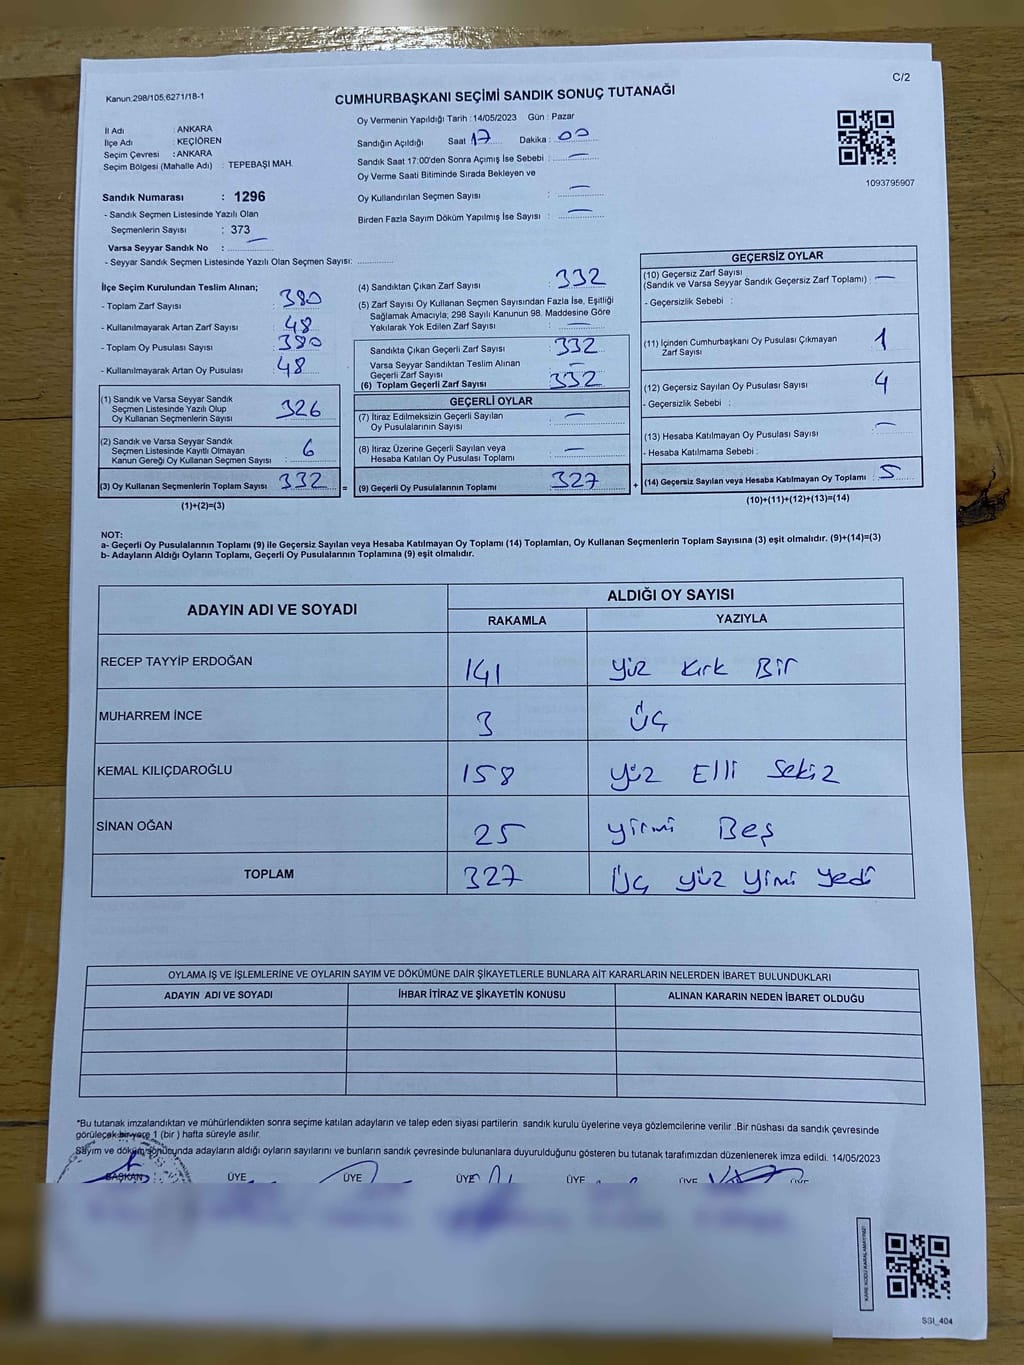 C/2
Kanun:298/105,6271/18-1
CUMHURBAŞKANI SEÇİMİ SANDIK SONUÇ TUTANAĞI
1093795907
İl Adı : ANKARA
İlçe Adı : KEÇİÖREN
Seçim Çevresi : ANKARA
Seçim Bölgesi (Mahalle Adı) : TEPEBAŞI MAH.
Sandık Numarası : 1296
- Sandık Seçmen Listesinde Yazılı Olan
Seçmenlerin Sayısı : 373
Varsa Seyyar Sandık No : —
- Seyyar Sandık Seçmen Listesinde Yazılı Olan Seçmen Sayısı:
Oy Vermenin Yapıldığı Tarih :14/05/2023 Gün : Pazar
Sandığın Açıldığı Saat 17 Dakika : 00
Sandık Saat 17:00'den Sonra Açımış İse Sebebi : —
Oy Verme Saati Bitiminde Sırada Bekleyen ve
Oy Kullandırılan Seçmen Sayısı : —
Birden Fazla Sayım Döküm Yapılmış İse Sayısı : —
İlçe Seçim Kurulundan Teslim Alınan;
- Toplam Zarf Sayısı : 380
- Kullanılmayarak Artan Zarf Sayısı : 48
- Toplam Oy Pusulası Sayısı : 380
- Kullanılmayarak Artan Oy Pusulası : 48
(1) Sandık ve Varsa Seyyar Sandık
Seçmen Listesinde Yazılı Olup
Oy Kullanan Seçmenlerin Sayısı : 326
(2) Sandık ve Varsa Seyyar Sandık
Seçmen Listesinde Kayıtlı Olmayan
Kanun Gereği Oy Kullanan Seçmen Sayısı : 6
(3) Oy Kullanan Seçmenlerin Toplam Sayısı : 332
(1)+(2)=(3)
(4) Sandıktan Çıkan Zarf Sayısı : 332
(5) Zarf Sayısı Oy Kullanan Seçmen Sayısından Fazla İse, Eşitliği
Sağlamak Amacıyla; 298 Sayılı Kanunun 98. Maddesine Göre
Yakılarak Yok Edilen Zarf Sayısı : —
Sandıkta Çıkan Geçerli Zarf Sayısı : 332
Varsa Seyyar Sandıktan Teslim Alınan
Geçerli Zarf Sayısı : —
(6) Toplam Geçerli Zarf Sayısı : 332
GEÇERLİ OYLAR
(7) İtiraz Edilmeksizin Geçerli Sayılan
Oy Pusulasının Sayısı : —
(8) İtiraz Üzerine Geçerli Sayılan veya
Hesaba Katılan Oy Pusulası Toplamı : —
= (9) Geçerli Oy Pusulalarının Toplamı : 327 +
GEÇERSİZ OYLAR
(10) Geçersiz Zarf Sayısı
(Sandık ve Varsa Seyyar Sandık Geçersiz Zarf Toplamı) : —
- Geçersizlik Sebebi :
(11) İçinden Cumhurbaşkanı Oy Pusulası Çıkmayan
Zarf Sayısı : 1
(12) Geçersiz Sayılan Oy Pusulası Sayısı : 4
- Geçersizlik Sebebi :
(13) Hesaba Katılmayan Oy Pusulası Sayısı : —
- Hesaba Katılmama Sebebi :
(14) Geçersiz Sayılan veya Hesaba Katılmayan Oy Toplamı : 5
(10)+(11)+(12)+(13)=(14)
NOT:
a- Geçerli Oy Pusulalarının Toplamı (9) ile Geçersiz Sayılan veya Hesaba Katılmayan Oy Toplamı (14) Toplamları, Oy Kullanan Seçmenlerin Toplam Sayısına (3) eşit olmalıdır. (9)+(14)=(3)
b- Adayların Aldığı Oyların Toplamı, Geçerli Oy Pusulalarının Toplamına (9) eşit olmalıdır.
ADAYIN ADI VE SOYADI ALDIĞI OY SAYISI
RAKAMLA YAZIYLA
RECEP TAYYİP ERDOĞAN 141 Yüz Kırk Bir
MUHARREM İNCE 3 Üç
KEMAL KILIÇDAROĞLU 158 Yüz Elli Sekiz
SİNAN OĞAN 25 Yirmi Beş
TOPLAM 327 Üç yüz yimi yedi
OYLAMA İŞ VE İŞLEMLERİNE VE OYLARIN SAYIM VE DÖKÜMÜNE DAİR ŞİKAYETLERLE BUNLARA AİT KARARLARIN NELERDEN İBARET BULUNDUKLARI
ADAYIN ADI VE SOYADI İHBAR İTİRAZ VE ŞİKAYETİN KONUSU ALINAN KARARIN NEDEN İBARET OLDUĞU
*Bu tutanak imzalandıktan ve mühürlendikten sonra seçime katılan adayların ve talep eden siyasi partilerin sandık kurulu üyelerine veya gözlemcilerine verilir .Bir nüshası da sandık çevresinde
görülecek bir yere 1 (bir ) hafta süreyle asılır.
Sayım ve döküm sonucunda adayların aldığı oyların sayılarını ve bunların sandık çevresinde bulunanlara duyurulduğunu gösteren bu tutanak tarafımızdan düzenlenerek imza edildi. 14/05/2023
BAŞKAN ÜYE ÜYE ÜYE ÜYE ÜYE ÜYE
KARE KODU KARALAMAYINIZ!
SSI_404